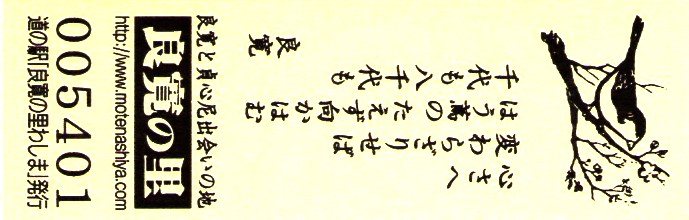 心さへ
変わらざりせば
はう蔦の たえず向かはむ
千代も八千代も
良寛
良寛と貞心尼出会いの地
良寛の里
http://www.motenashiya.com
005401
道の駅「良寛の里わしま」発行